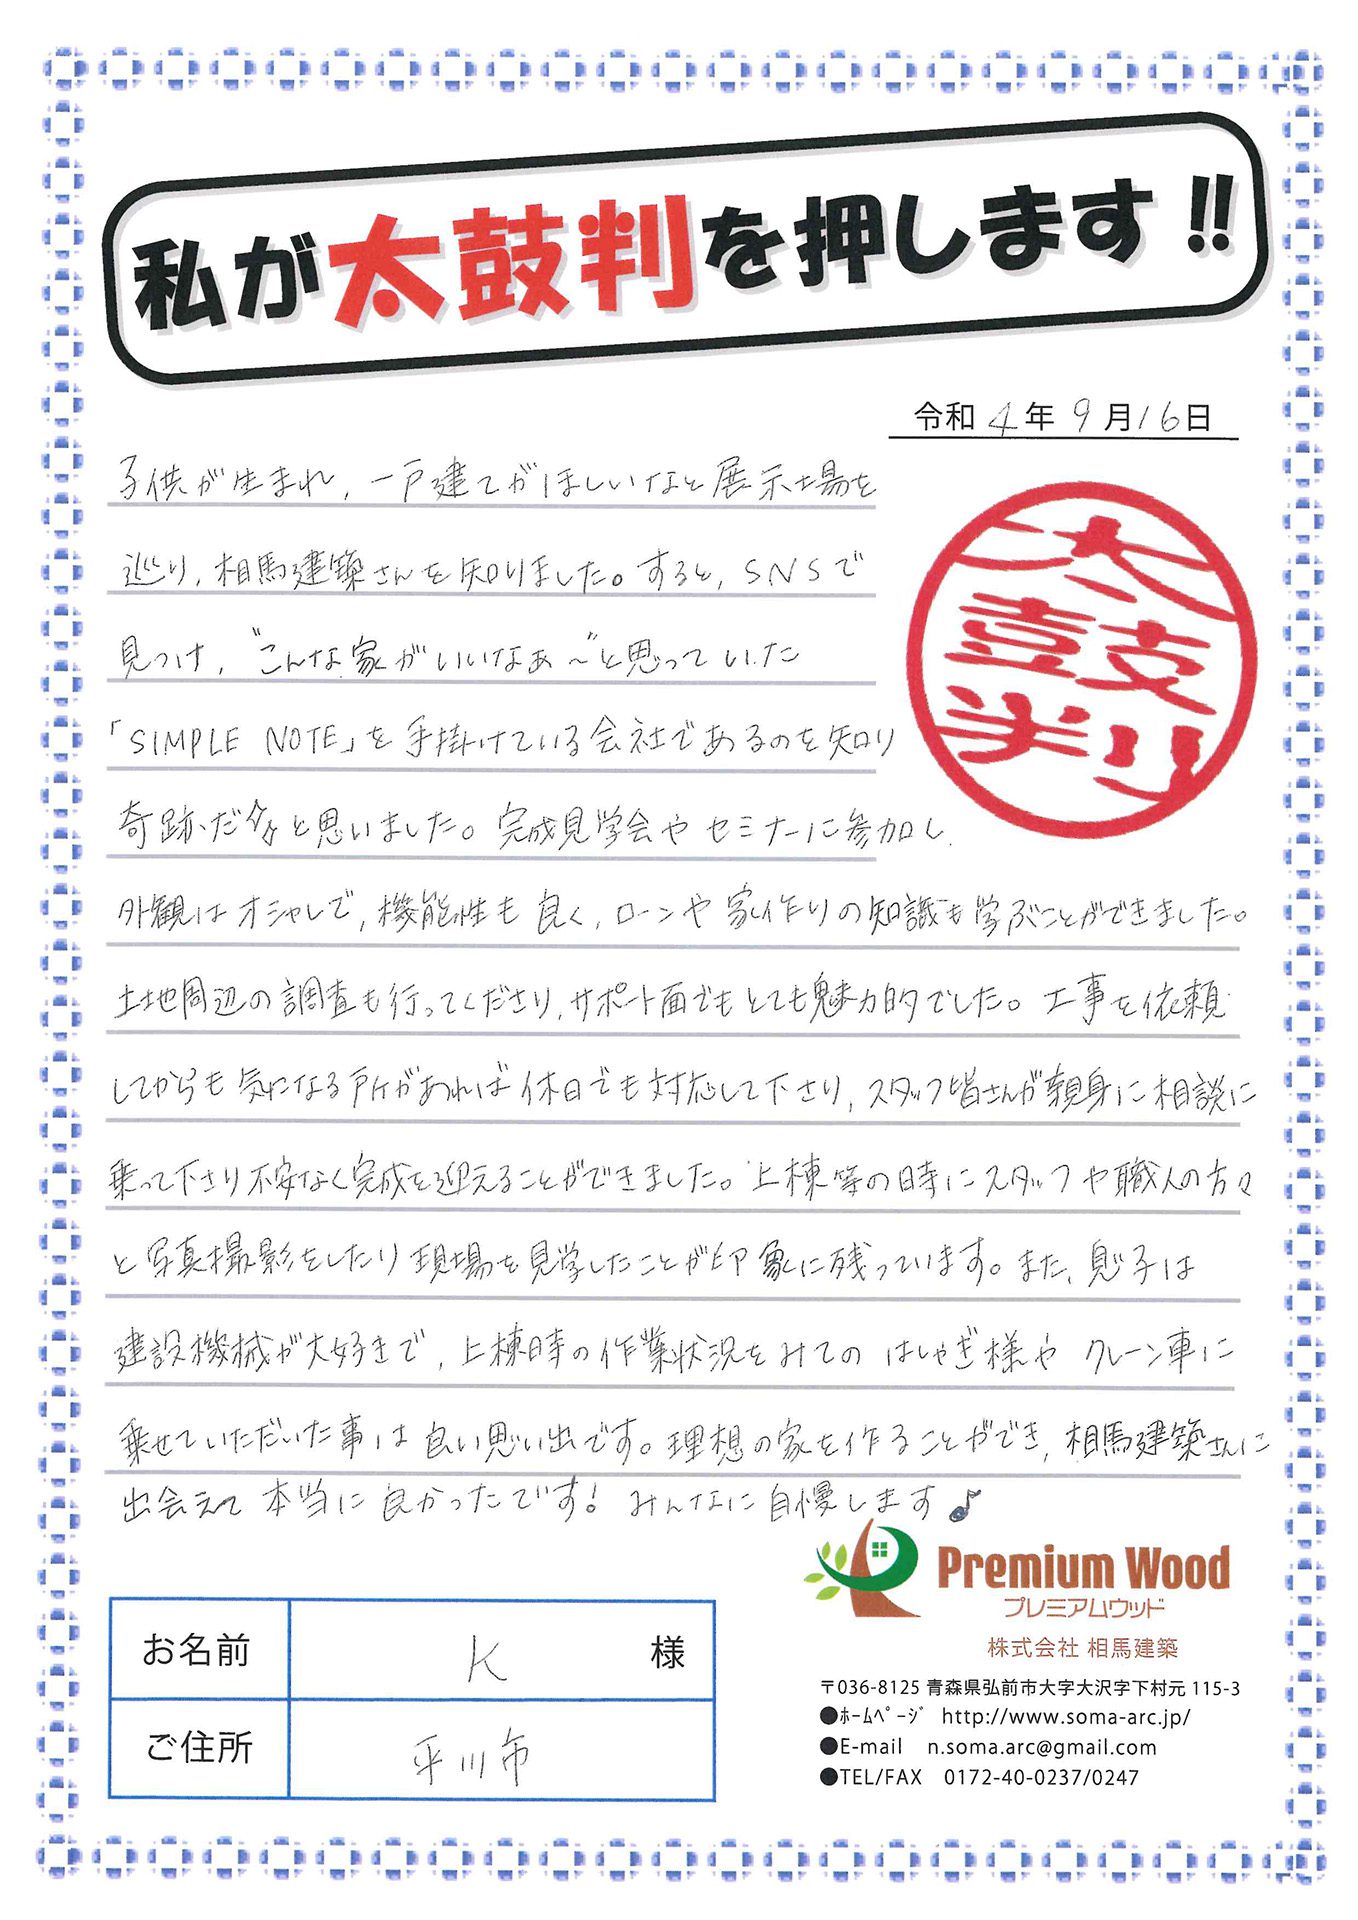 私が太鼓判を押します!!
令和4年9月16日
子供が生まれ、一戸建てがほしいなと展示場を
巡り、相馬建築さんを知りました。すると、SNSで
見つけ、"こんな家がいいなぁ〜"と思っていた
「SIMPLE NOTE」を手掛けている会社であるのを知り
奇跡だなと思いました。完成見学会やセミナーに参加し、
外観はオシャレで、機能性も良く、ローンや家作りの知識も学ぶことができました。
土地周辺の調査も行ってくださり、サポート面でもとても魅力的でした。工事を依頼
してからも気になる所があれば休日でも対応して下さり、スタッフ皆さんが親身に相談に
乗って下さり不安なく完成を迎えることができました。上棟等の時にスタッフや職人の方々
と写真撮影をしたり現場を見学したことが印象に残っています。また、息子は
建設機械が大好きで、上棟時の作業状況をみてのはしゃぎ様やクレーン車に
乗せていただいた事は良い思い出です。理想の家を作ることができ、相馬建築さんに
出会えて本当に良かったです!みんなに自慢します♪
太鼓判
Premium Wood
プレミアムウッド
株式会社 相馬建築
〒036-8125 青森県弘前市大字大沢字下村元 115-3
●ﾎｰﾑﾍﾟｰｼﾞ http://www.soma-arc.jp/
●E-mail n.soma.arc@gmail.com
●TEL/FAX 0172-40-0237/0247
お名前 K 様
ご住所 平川市